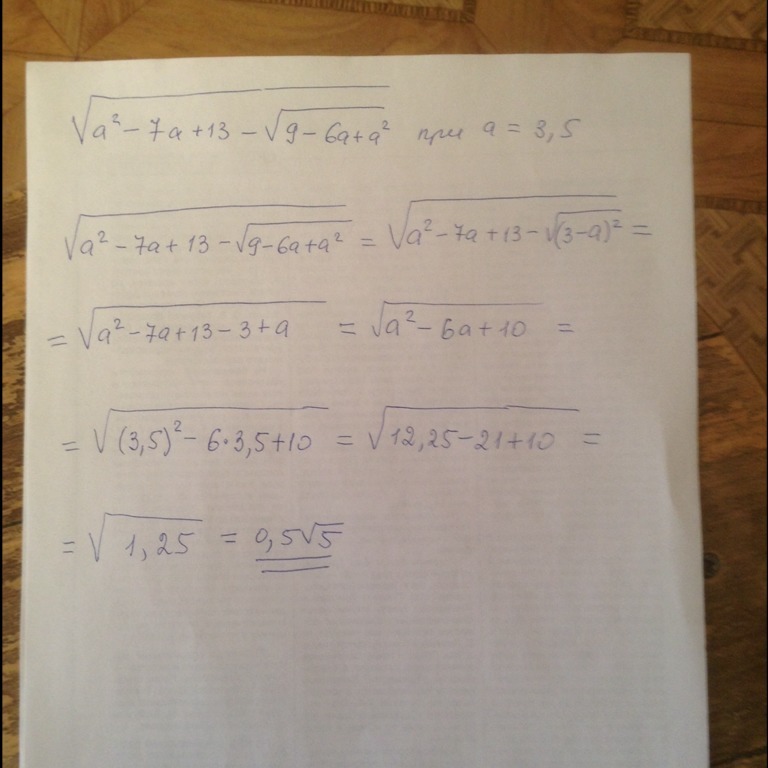 √(a² − 7a + 13 − √(9 − 6a + a²)) при a = 3,5
√(a² − 7a + 13 − √(9 − 6a + a²)) = √(a² − 7a + 13 − √(3 − a)²) =
= √(a² − 7a + 13 − 3 + a) = √(a² − 6a + 10) =
= √((3,5)² − 6·3,5 + 10) = √(12,25 − 21 + 10) =
= √(1,25) = 0,5√5